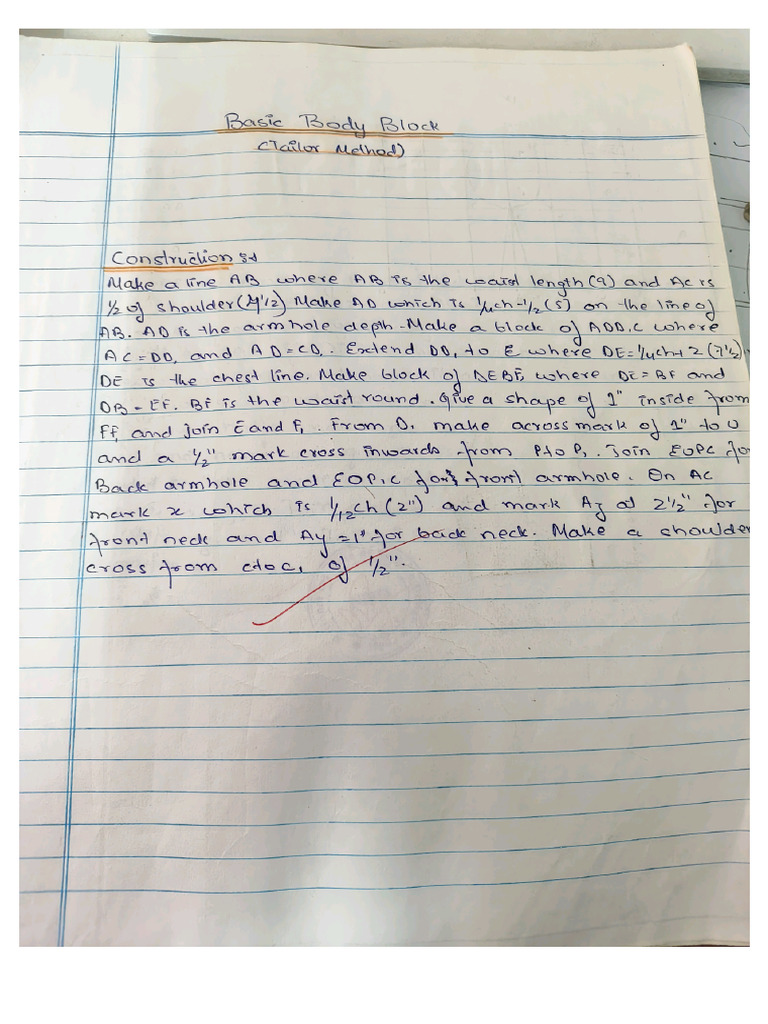 Basic Body Block
(Tailor Method)
Construction :-
Make a line AB where AB is the waist length (9) and AC is
1/2 of shoulder (4 1/2) Make AD which is 1/4 ch - 1/2 (5) on the line of
AB. AD is the armhole depth. Make a block of ADD,C where
AC = DD, and AD = CD,. Extend DD, to E where DE = 1/4 ch + 2 (7 1/2)
DE is the chest line. Make block of DEBF, where DE = BF and
DB = EF. BF is the waist round. Give a shape of 1" inside from
FF, and join E and F, . From D, make across mark of 1" to O
and a 1/2" mark cross inwards from P to P, . Join EOPC for
Back armhole and EOP,C for front armhole. On AC
mark x which is 1/12 ch (2") and mark Az at 2 1/2" for
front neck and Ay = 1" for back neck. Make a shoulder
cross from c to c, of 1/2".